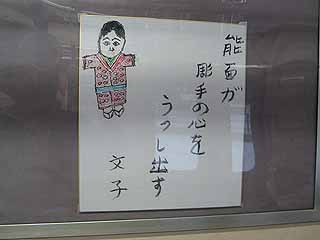 能面が
彫手の心を
うつし出す
文子